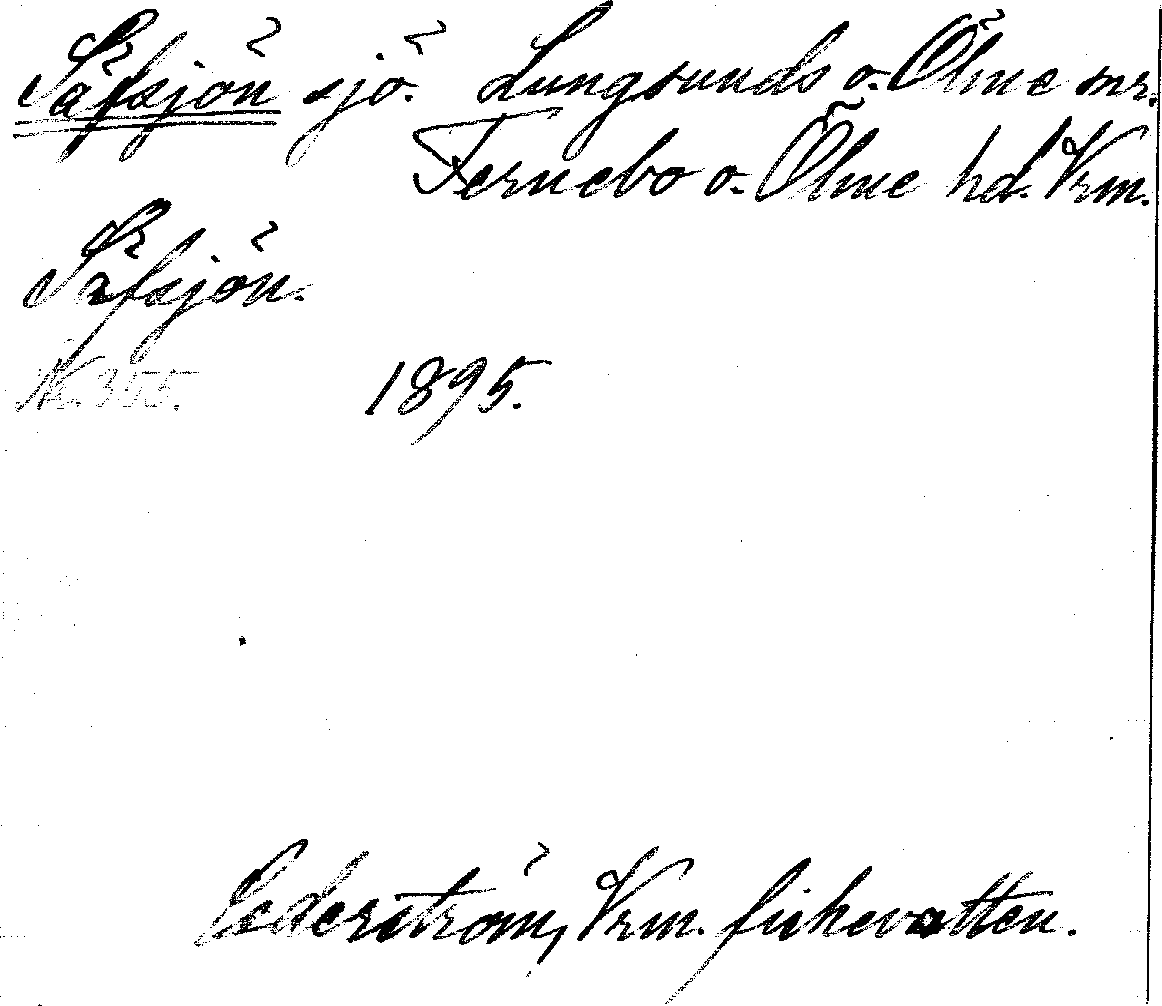 Säfsjön sjö. Lungsunds o. Ölme snr.
Fernebo o. Ölme hd. Vrm.
Säfsjön.
N. 355. 1895.
Cederström, Vrm. fiskevatten.